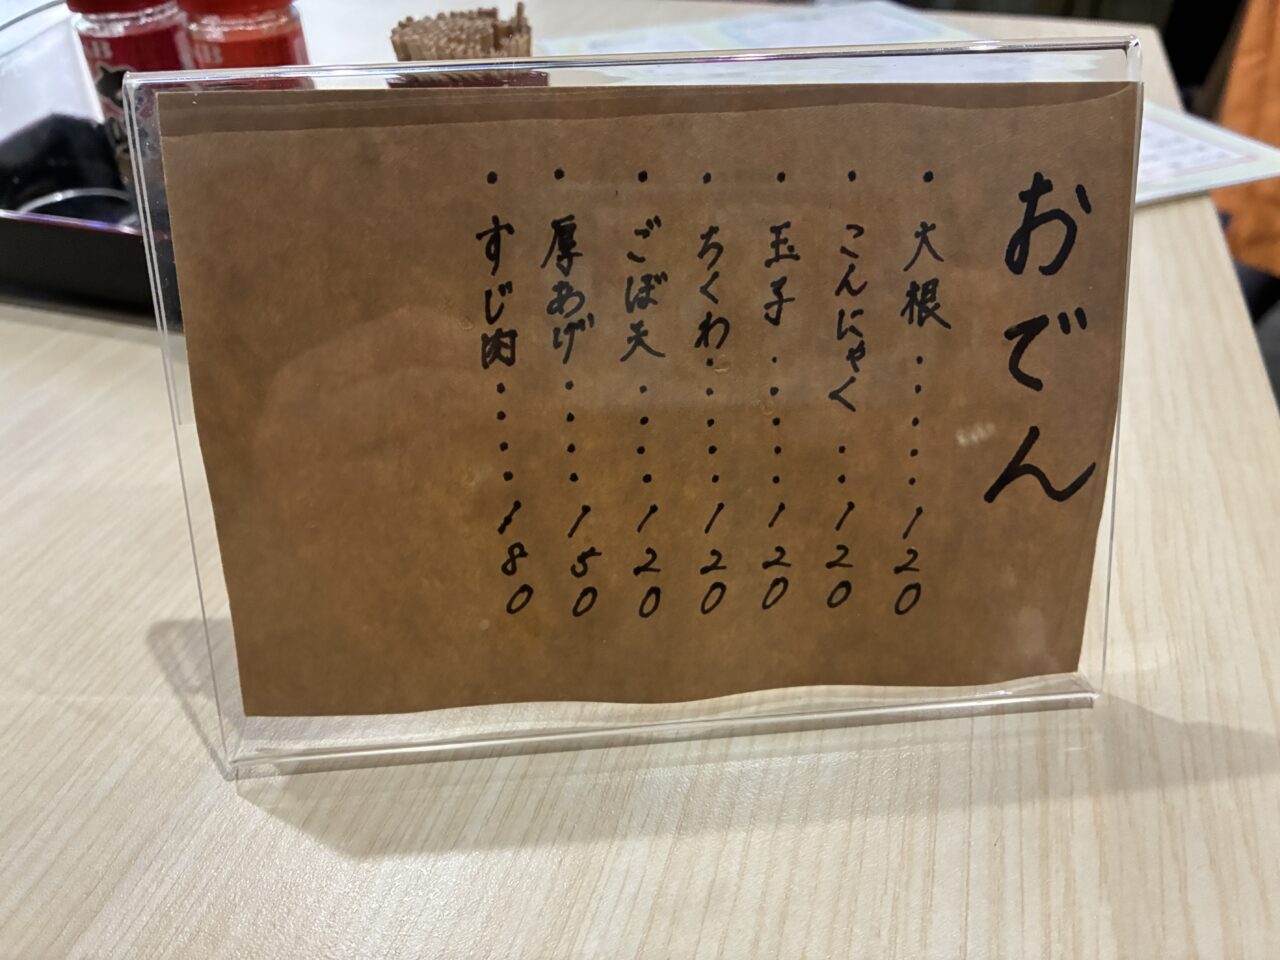 おでん
・大根・・・・・120
・こんにゃく・・120
・玉子・・・・・120
・ちくわ・・・・・120
・ごぼ天・・・・120
・厚あげ・・・・150
・すじ肉・・・・180